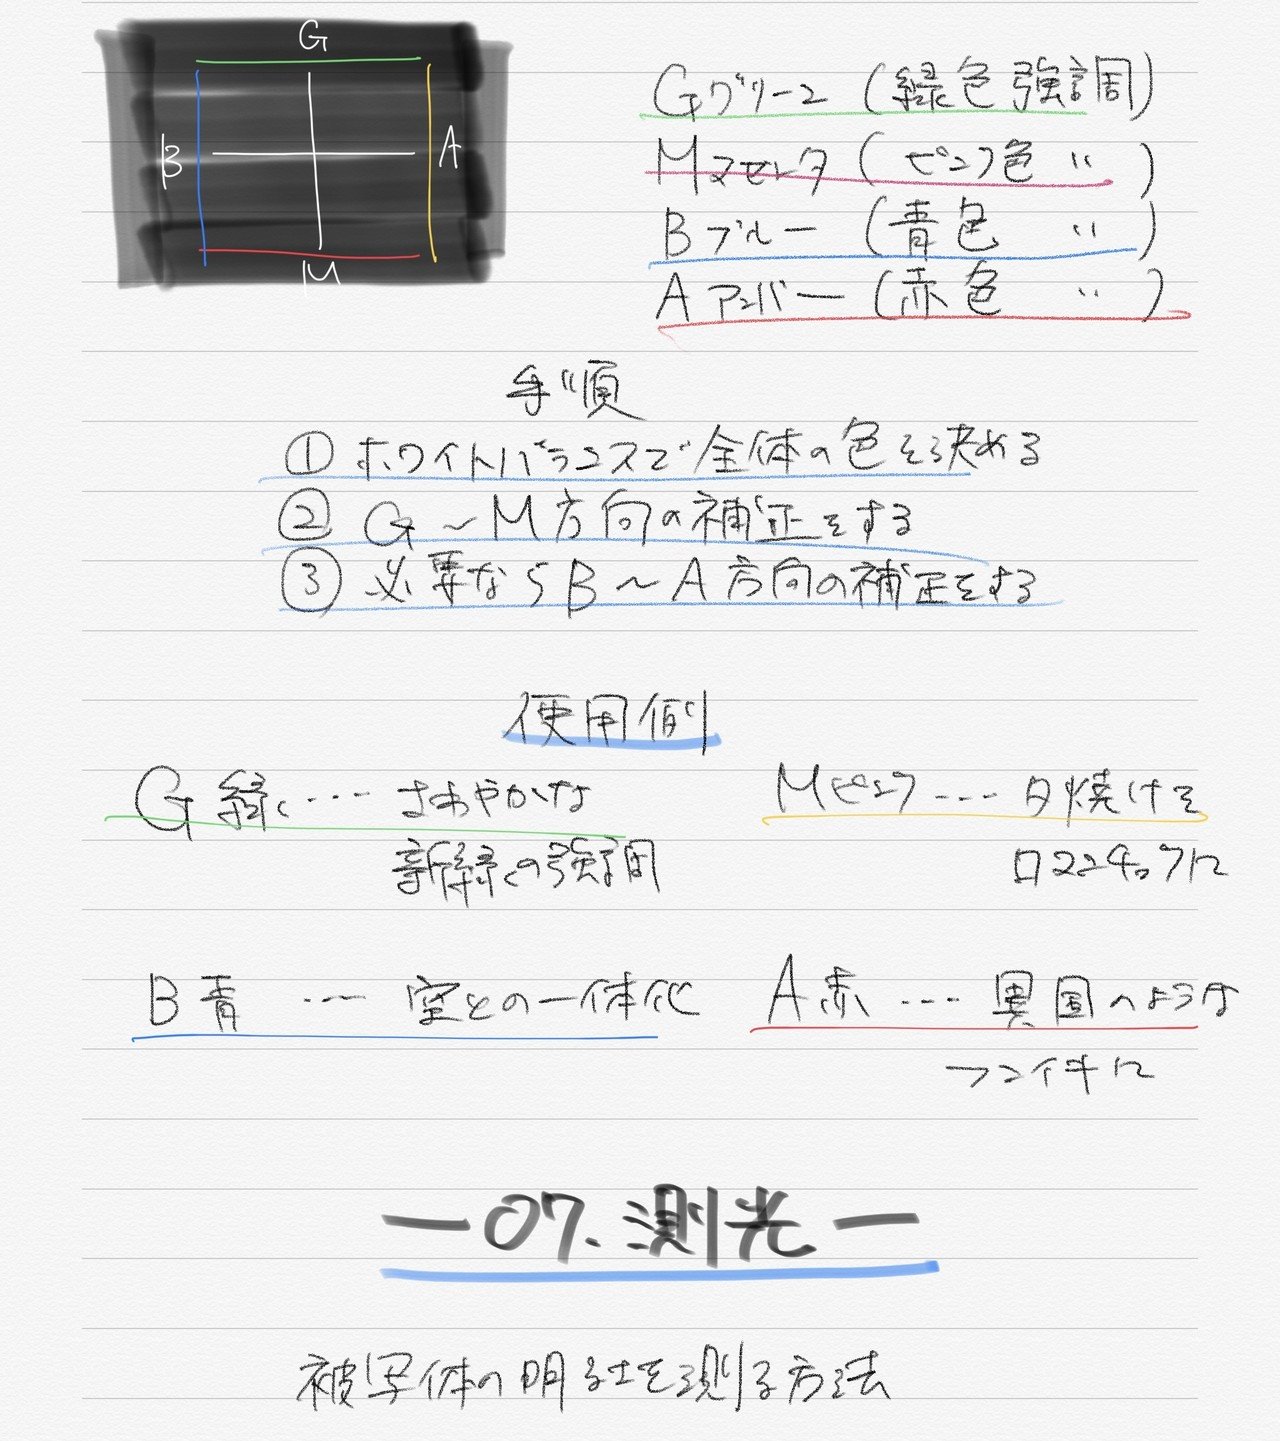 G
B
A
M
Gグリーン(緑色強調)
Mマゼンタ(ピンク色 〃)
Bブルー(青色 〃)
Aアンバー(赤色 〃)
手順
① ホワイトバランスで全体の色を決める
② G〜M方向の補正をする
③ 必要ならB〜A方向の補正をする
使用例
G緑… さわやかな
新緑の強調
Mピンク… 夕焼けを
ロマンチックに
B青 … 空との一体化
A赤 … 異国のような
フンイキに
—07.測光—
被写体の明るさを測る方法